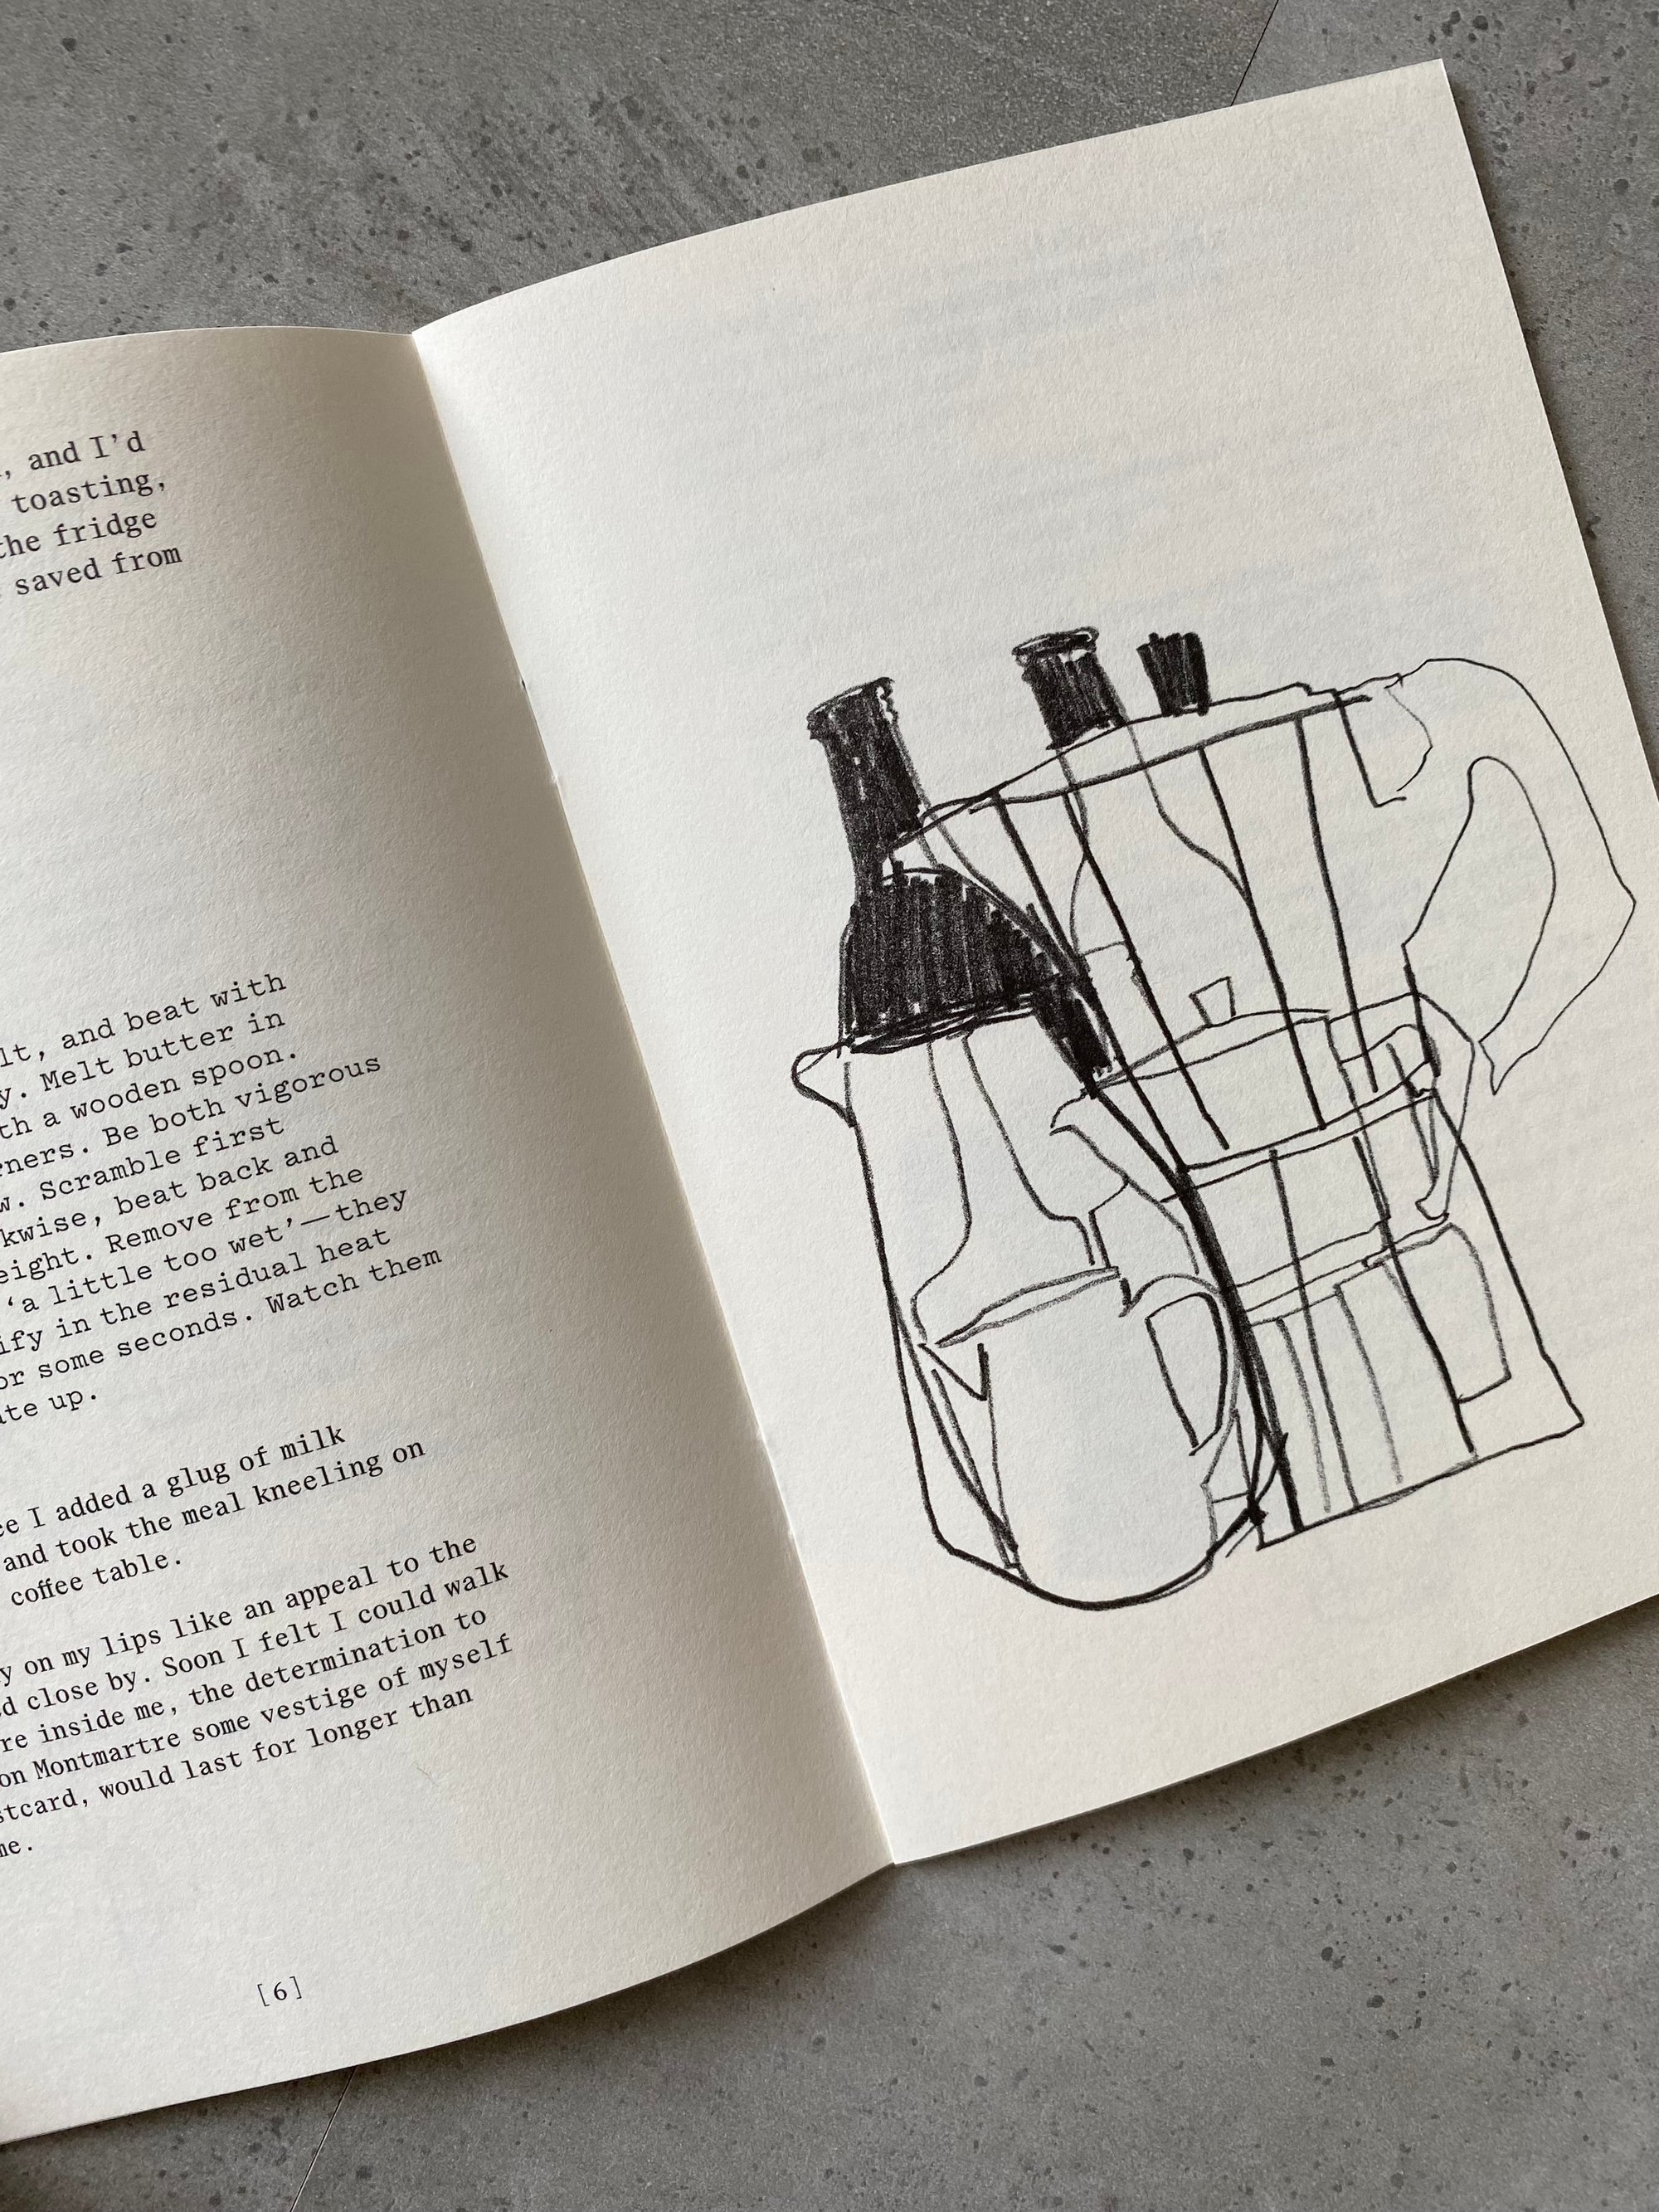 and I'd
toasting,
the fridge
saved from
and beat with
Melt butter in
a wooden spoon.
Be both vigorous
Scramble first
beat back and
Remove from the
‘a little too wet’—they
in the residual heat
some seconds. Watch them
up.
I added a glug of milk
and took the meal kneeling on
coffee table.
on my lips like an appeal to the
close by. Soon I felt I could walk
inside me, the determination to
on Montmartre some vestige of myself
would last for longer than
[6]